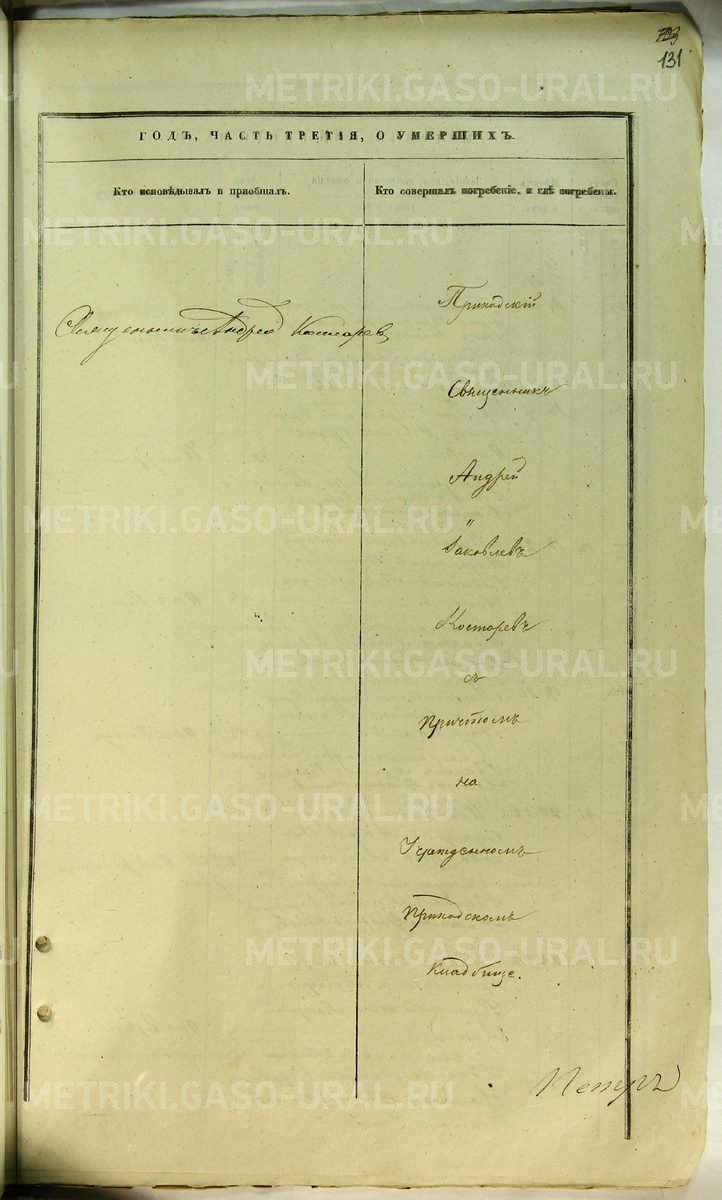 131
ГОДЪ, ЧАСТЬ ТРЕТІЯ, О УМЕРШИХЪ.
Кто исповѣдывалъ и пріобщалъ.
Кто совершалъ погребеніе, и гдѣ погребены.
Священникъ Андрей Костарев
Приходскій
Священникъ
Андрей
Іаковлевъ
Костаревъ
съ
Причтомъ
на
Учрежденномъ
Приходскомъ
Кладбище.
Петръ
METRIKI.GASO-URAL.RU